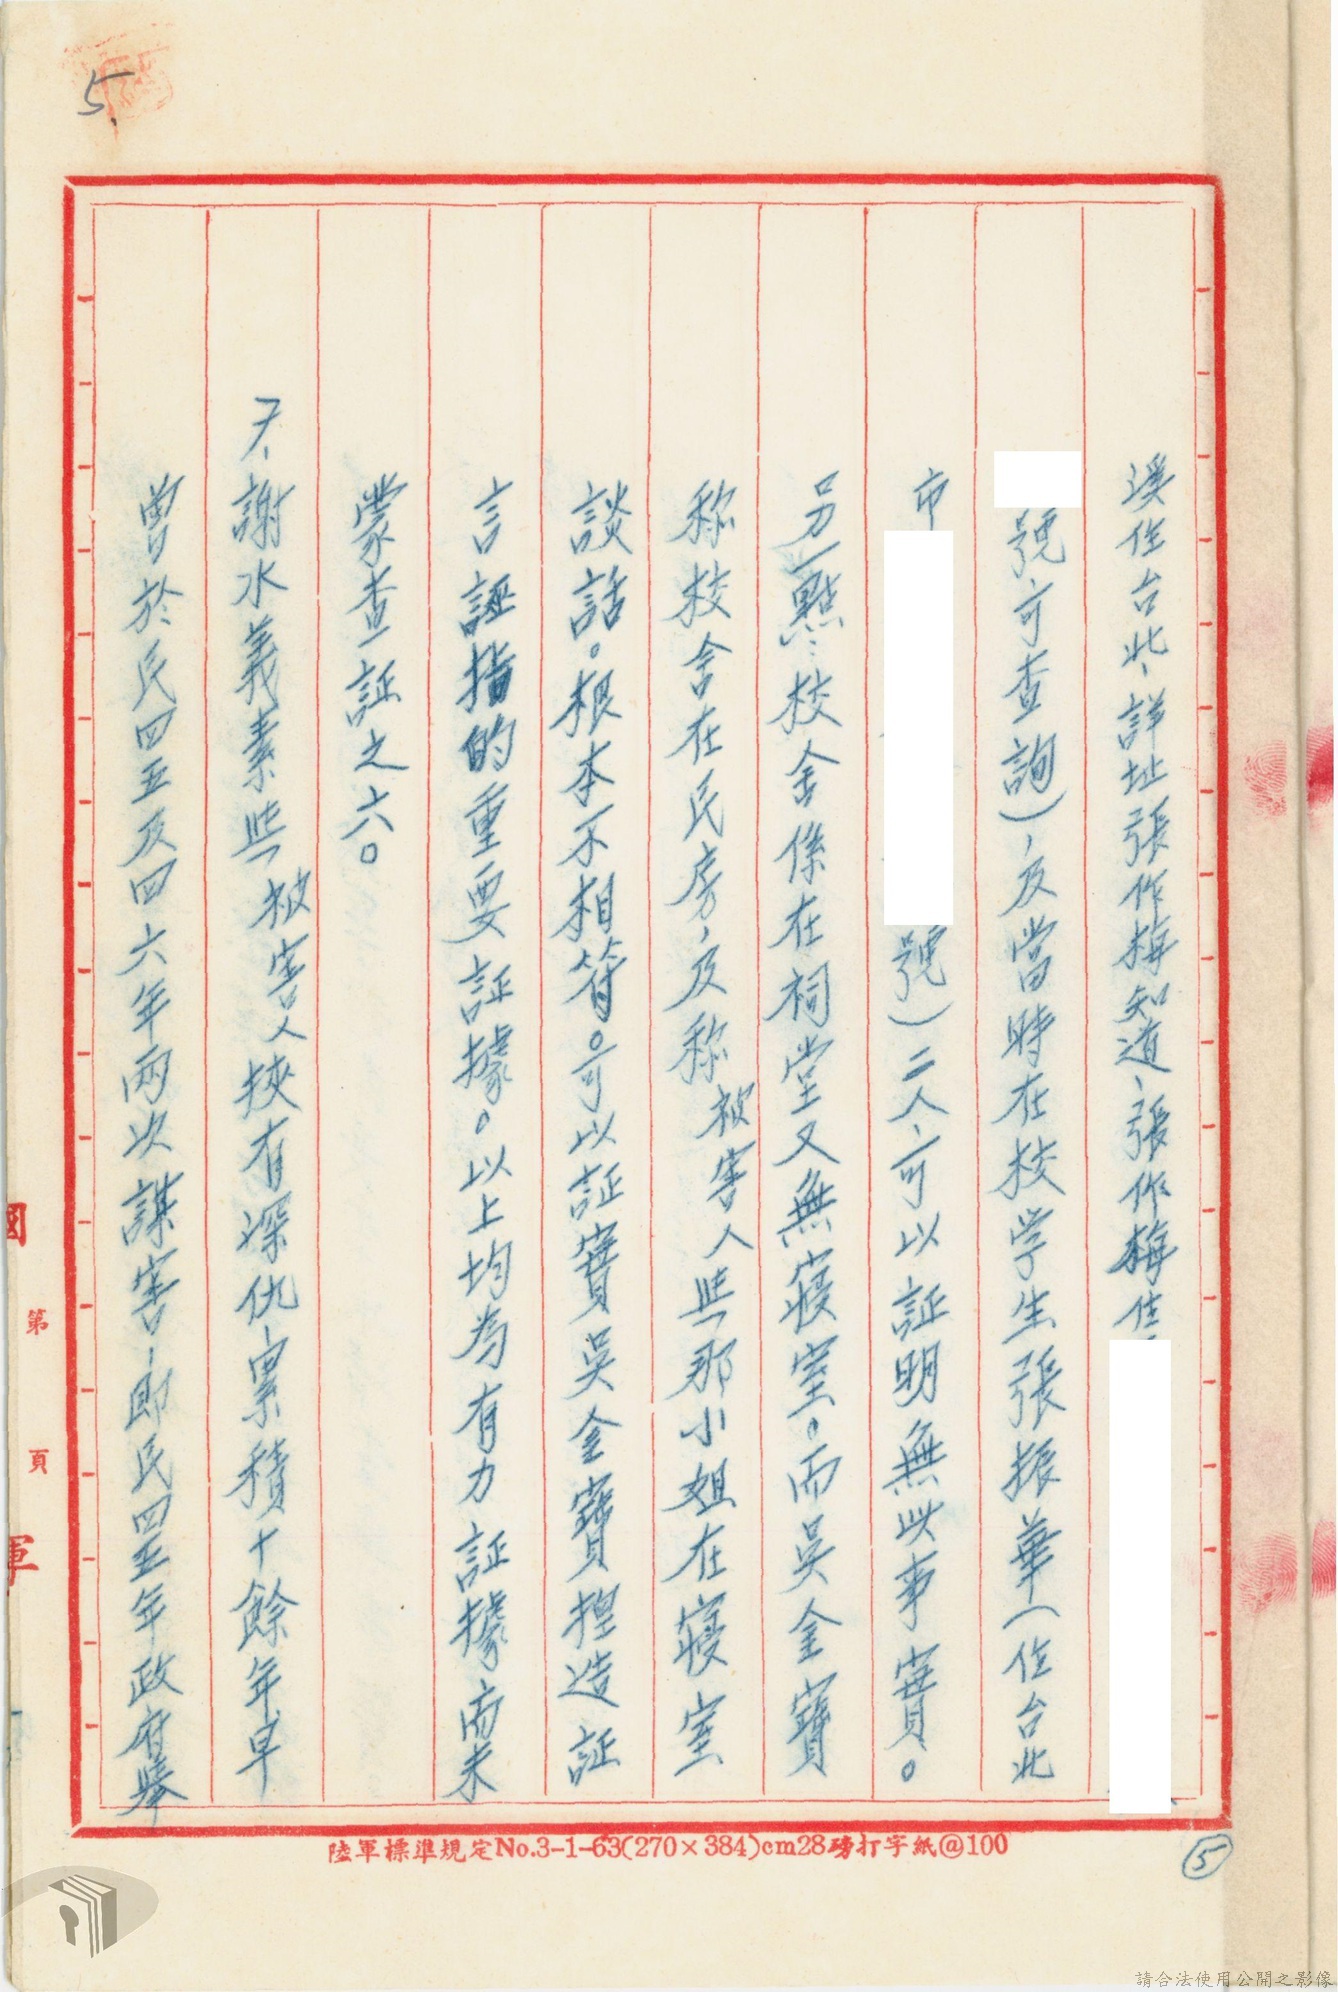 5.
溪住台北、詳址張作梅知道、張作梅住
號可查詢)，及當時在校学生張振華(住台北
市號)二人、可以証明無此事實。
另一點：校舍係在祠堂又無寢室。而吳金寶
称校舍在民房，及称被害人與那小姐在寢室
談話。根本不相符。可以証實吳金寶捏造証
言誣指的重要証據。以上均為有力証據而未
蒙查証之六。
7、謝水義素與被害人挾有深仇累積十餘年早
曾於民四五及四六年兩次謀害，即民四五年政府舉
國
第
頁
軍
陸軍標準規定No.3-1-63(270×384)cm28磅打字紙@100
5
請合法使用公開之影像